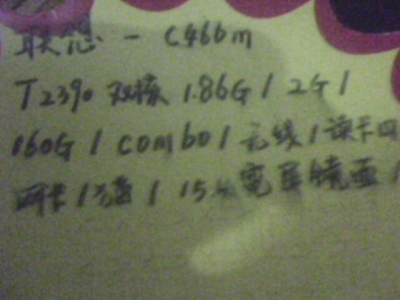 联想 - C466m
T2390 双核 1.86G / 2G /
160G / COMBO / 无线 / 读卡
网卡 / 猫 / 15.4 宽屏镜面 /